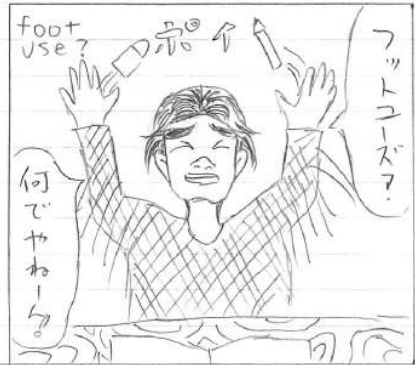 foot
use?
ポイ
フットユーズア?
何でやねーん!